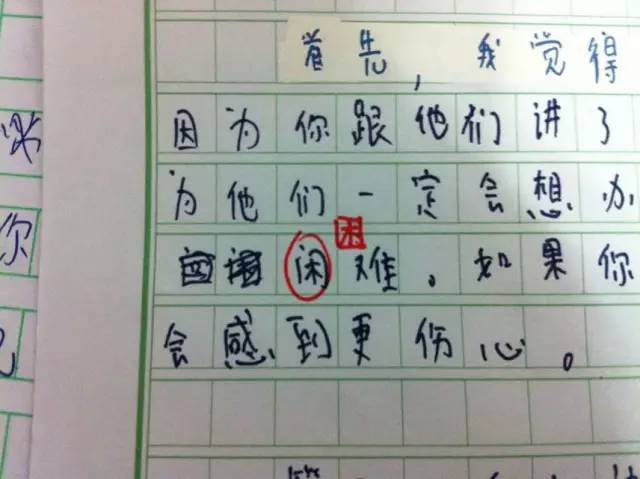 首先，我觉得
因为你跟他们讲了
为他们一定会想办
困
闲难。如果你
会感到更伤心。